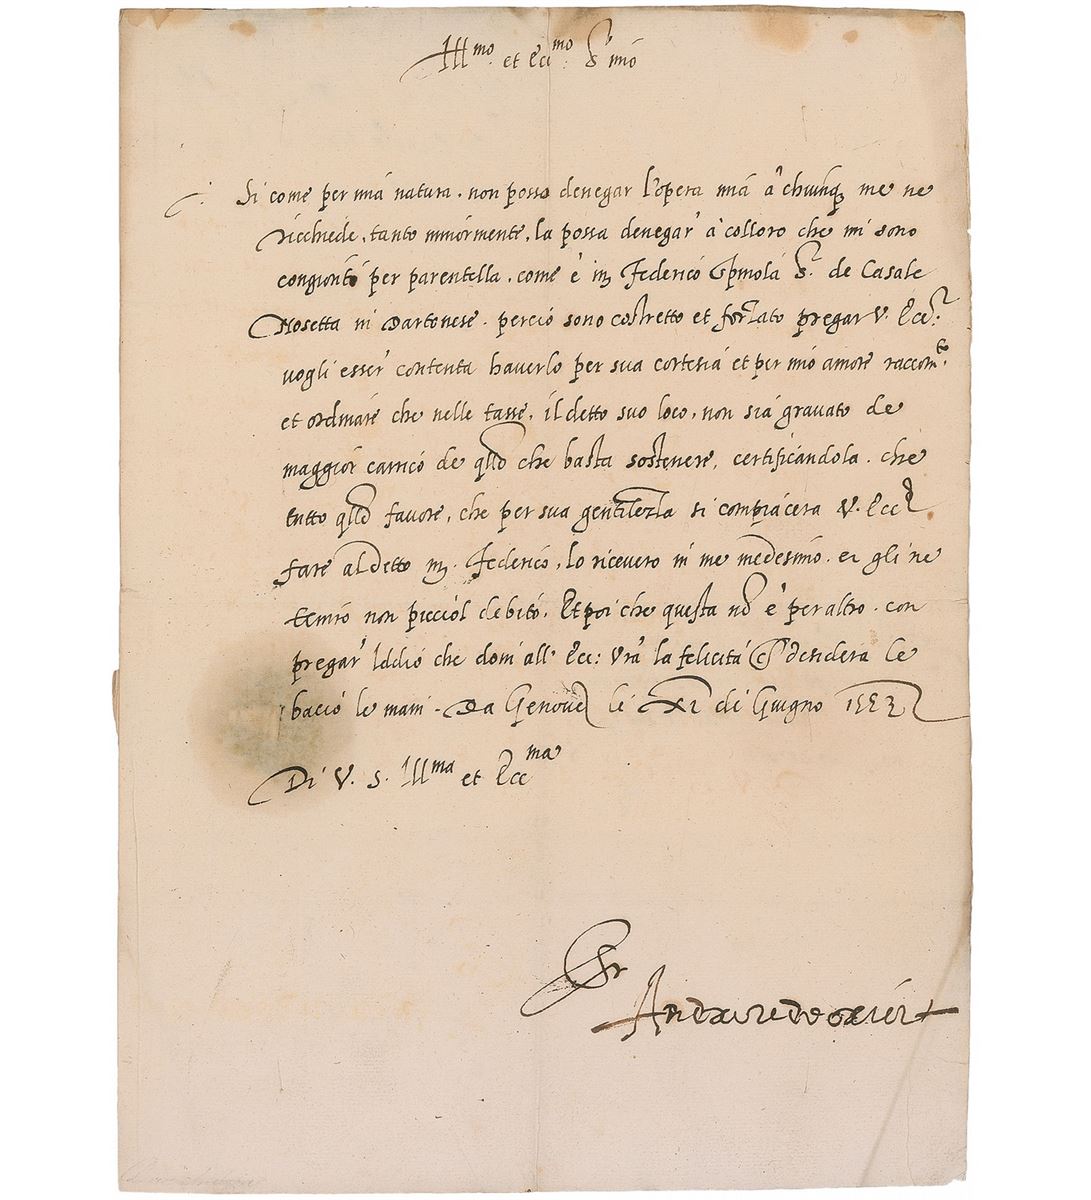 Ill^mo et Ecc^mo S^r mio
Si come per mia natura . non posso denegar l'opera mia à chiunq me ne
ricchiede, tanto minormente, la possa denegar à colloro che mi sono
congionti per parentella . come è m Federico Spinola S^r de Casale
Nosetta in Dartonese . perciò sono costretto et forzato pregar V. Ecc^a:
vogli esser contenta haverlo per sua cortesia et per mio amore raccom^to:
et ordinare che nelle tasse, il detto suo loco, non sia gravato de
maggior carrico de qllo che basta sostenere, certificandola . che
tutto qllo favore, che per sua gentilezza si compiacera V. Ecc^a
fare al detto m . Federico, lo ricevero in me medesimo . et gli ne
temiro non picciol debito. Et poi che questa nō è per altro . con
pregar Iddio che doni all' Ecc: Vrā la felicità desidera le
bacio le mani . Da Genova li XI di Giugno 1553
Di V. S. Ill^ma et Ecc^ma
S^r
Andrea de oria